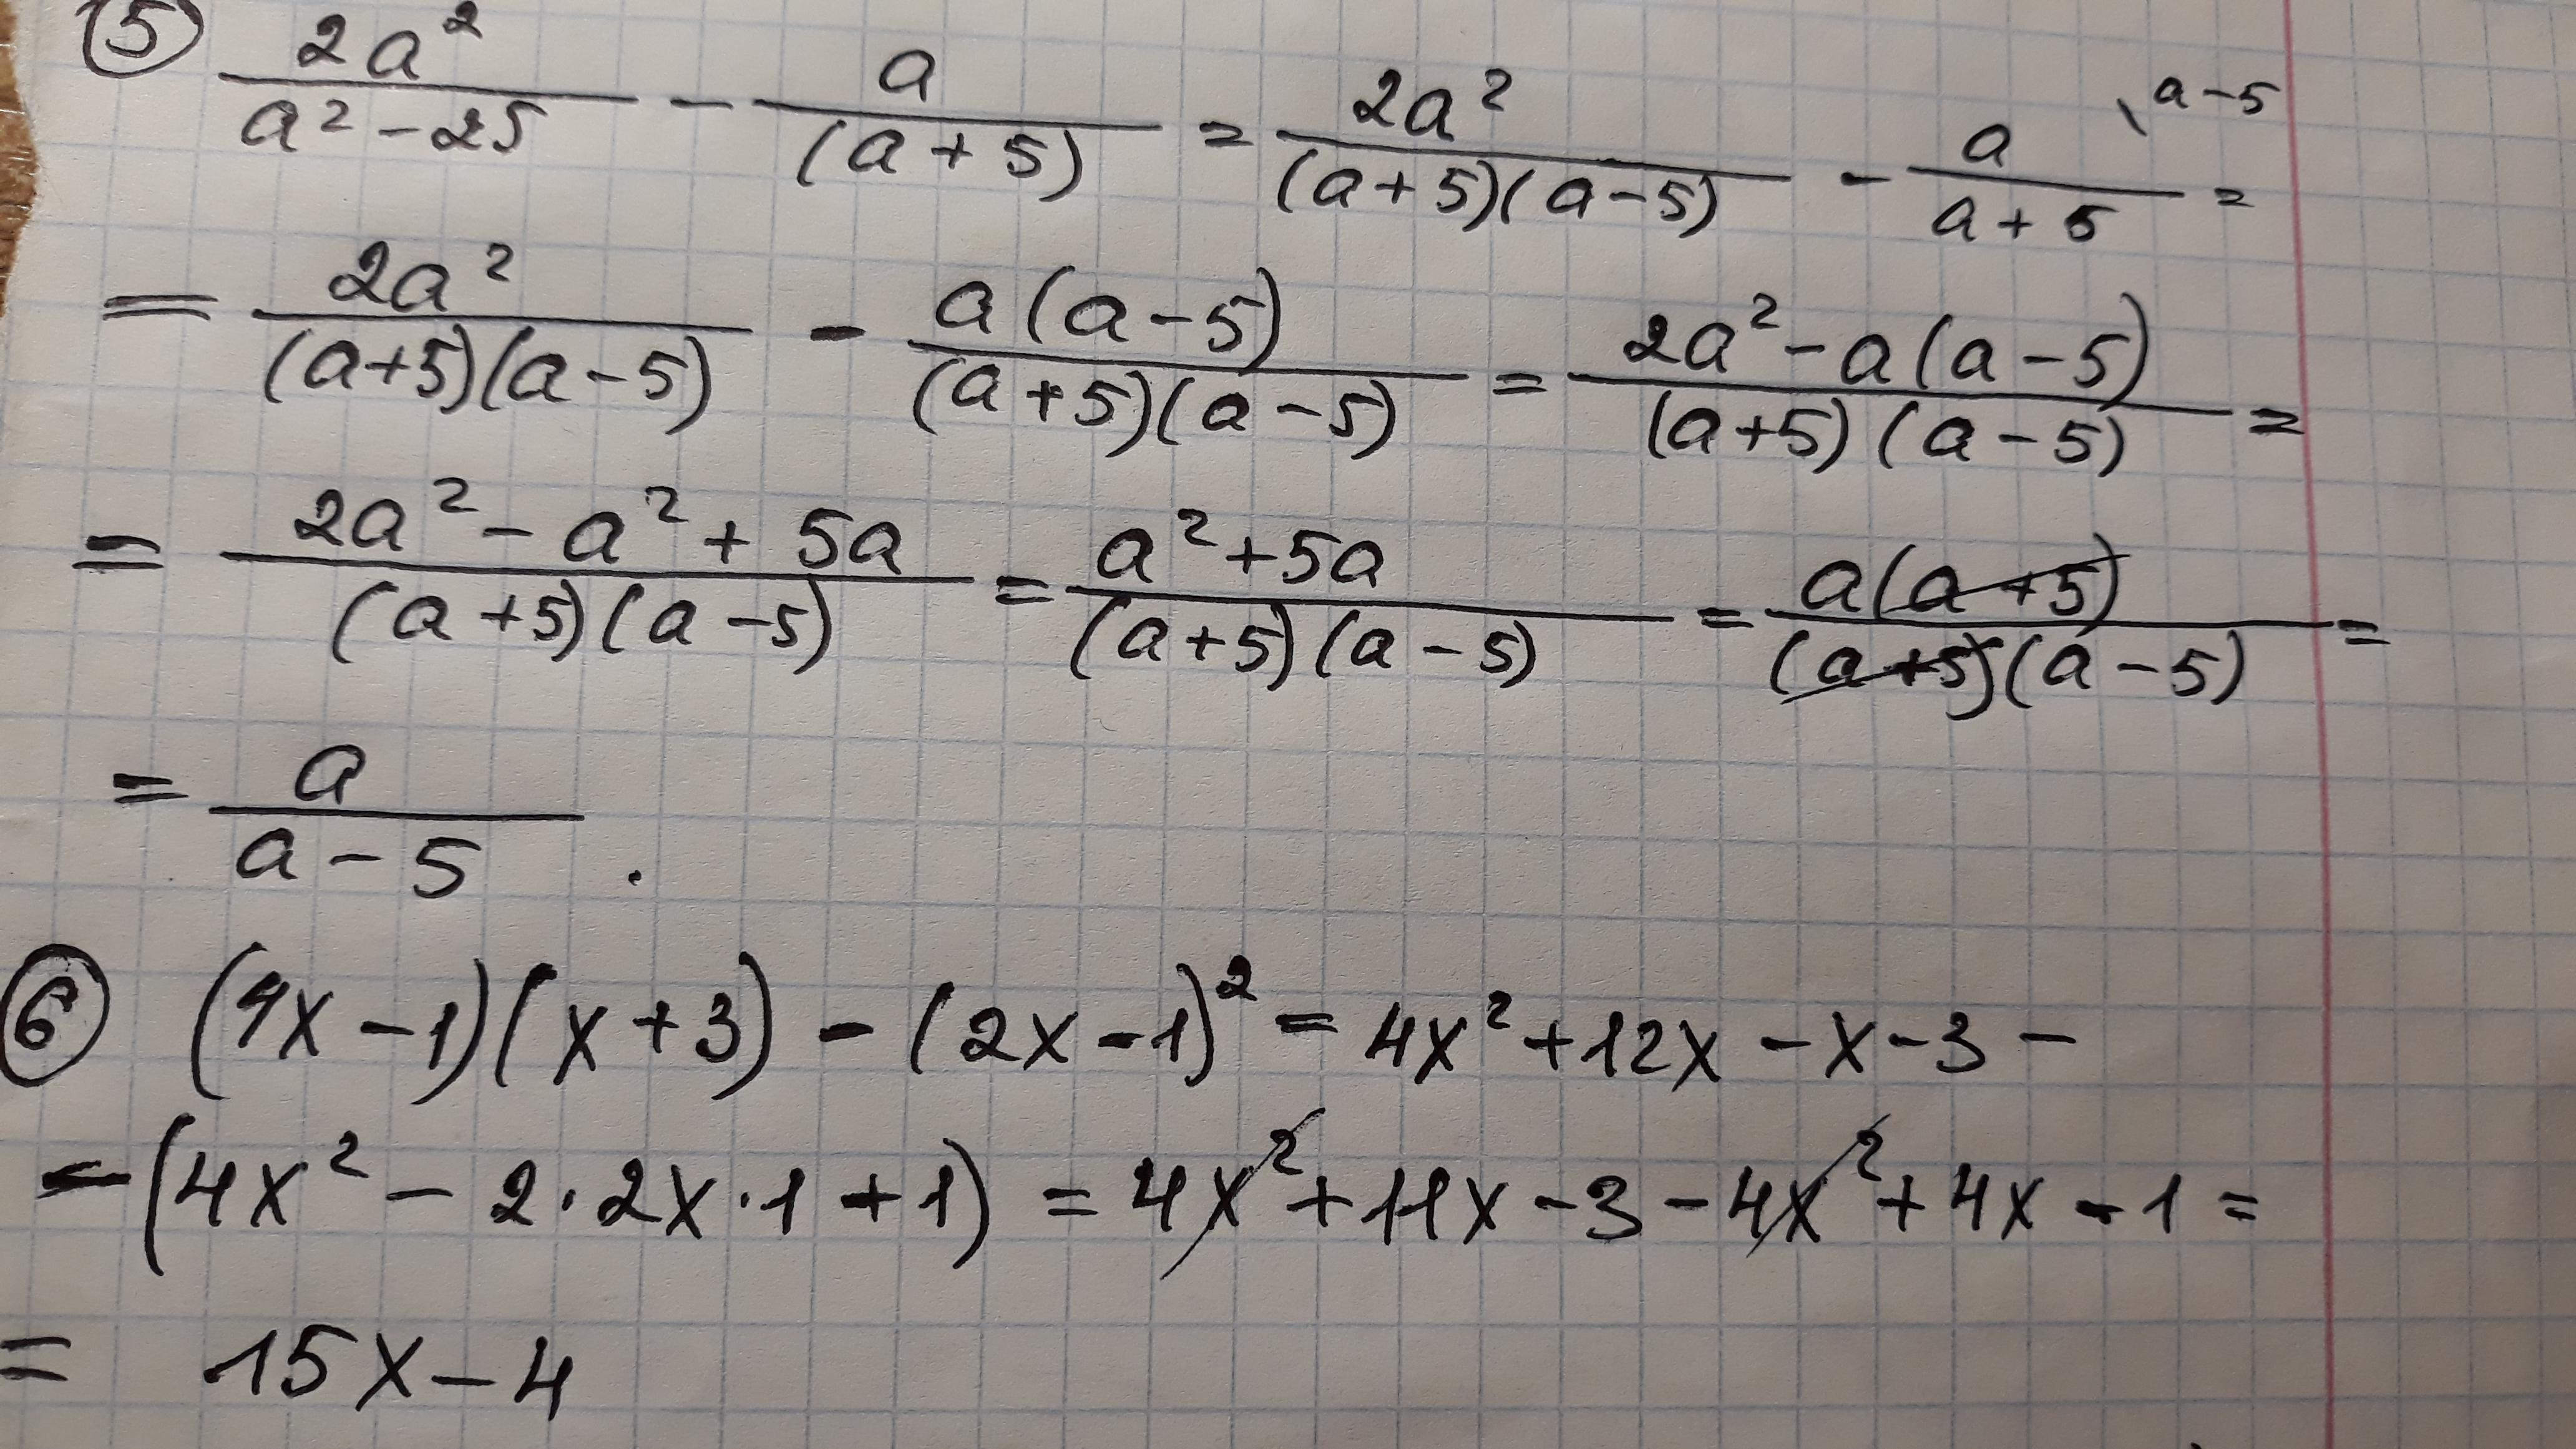 ⑤ 2a²/(a²-25) - a/(a+5) = 2a²/((a+5)(a-5)) - a/(a+5) \a-5 =
= 2a²/((a+5)(a-5)) - a(a-5)/((a+5)(a-5)) = (2a²-a(a-5))/((a+5)(a-5)) =
= (2a²-a²+5a)/((a+5)(a-5)) = (a²+5a)/((a+5)(a-5)) = a(a+5)/((a+5)(a-5)) =
= a/(a-5) .
⑥ (4x-1)(x+3) - (2x-1)² = 4x²+12x-x-3-
-(4x²-2·2x·1+1) = 4x²+11x-3-4x²+4x-1=
= 15x-4